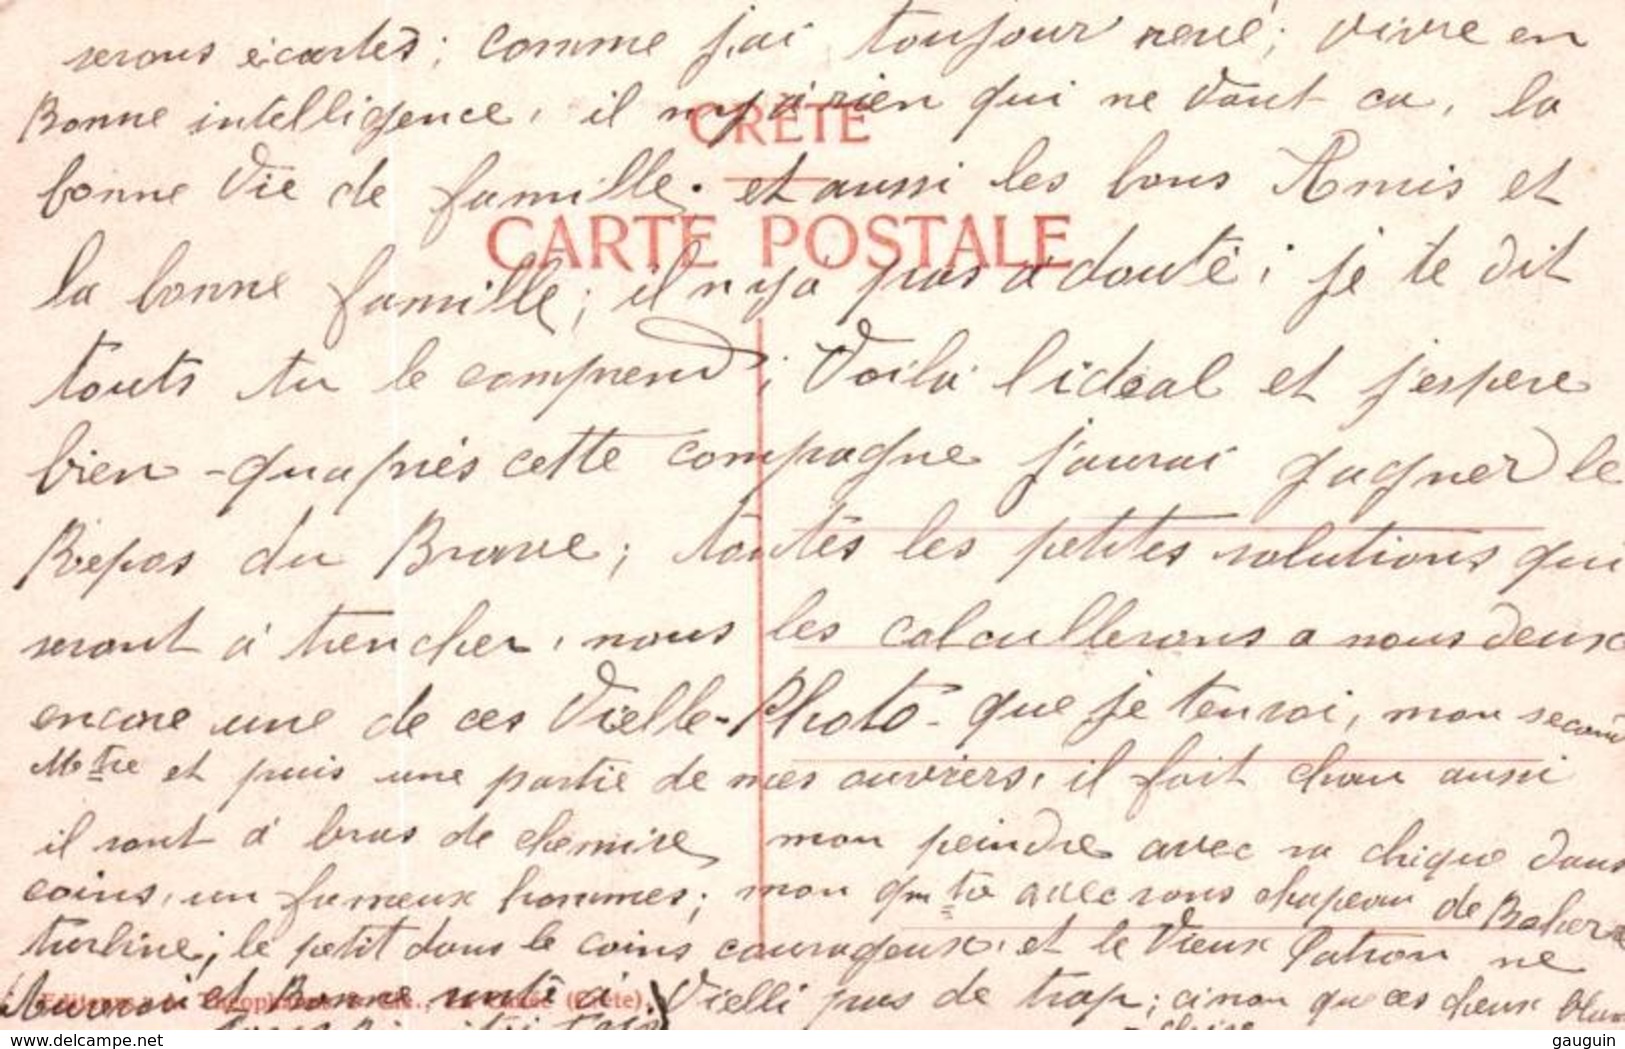 serons écartès; comme j'ai toujour revé; vivre en
Bonne intelligence, il n'y a rien qui ne vaut ca, la
CRÈTE
bonne Vie de famille. et aussi les bons Amis et
CARTE POSTALE
la bonne famille; il n'y a pas a doutè; je te dit
touts tu le comprend; Voila l'idéal et j'espere
bien qu'apriès cette compagne j'aurai gagner le
Repos du Brave; toutès les petites solutions qui
seront à trencher, nous les calcullerons a nous deux
encore une de ces Vielle-Photo que je tenvoi, mon second
Mtre et puis une partie de mes ouvriers, il fait chau aussi
il sont à bras de chemise, mon peindre avec sa chique dans
coins, un fameux hommes; mon avec sons chapeau de
turbine; le petit dans le coins courageux, et le Vieux Patron ne
et Bonne Vielli pas de trop; cinon que ces cheux
(Crète).
akpool.co.uk